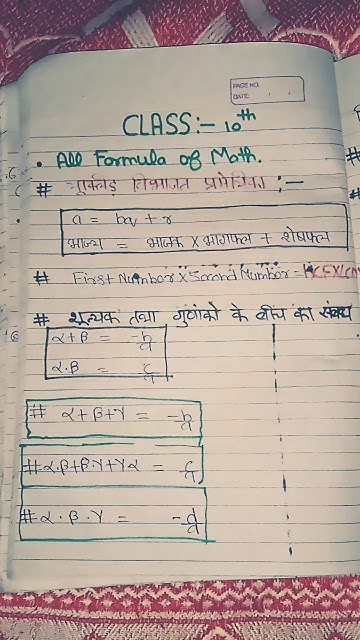 PAGE NO.
DATE:
CLASS:- 10th
• All Formula of Math.
# यूक्लीड विभाजन प्रमेयिका :-
a = bq + r
भाज्य = भाजक × भागफल + शेषफल
# First Number × Second Number = HCF × LCM
# शून्यक तथा गुणांको के बीच का संबंध
α+β = -b/a
α.β = c/a
# α+β+γ = -b/a
# α.β+β.γ+γα = c/a
# α.β.γ = -d/a